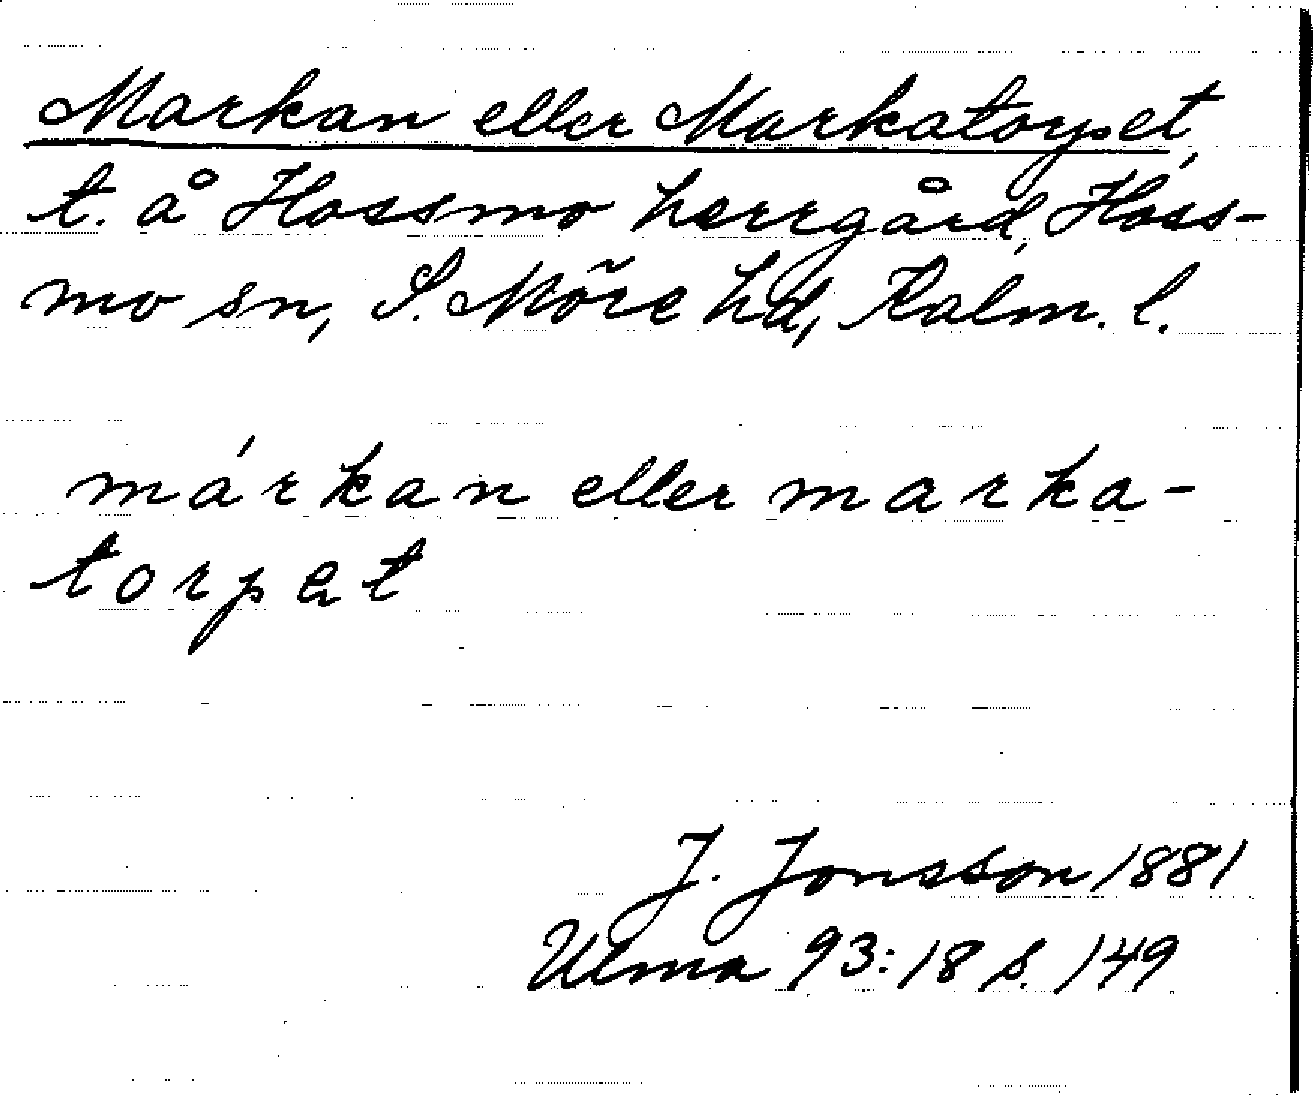 Markan eller Markatorpet,
t. å Hossmo herrgård, Hoss-
mo sn, S. Möre hd, Kalm. l.
márkan eller marka-
torpet
J. Jonsson 1881
Ulma 93:18 s. 149